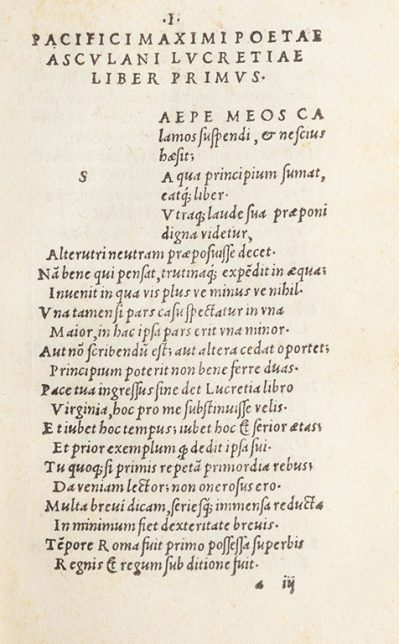 ·I·
PACIFICI MAXIMI POETAE
ASCVLANI LVCRETIAE
LIBER PRIMVS·
S AEPE MEOS CA
lamos suspendi, & nescius
hæsit;
A qua principium sumat,
eatq; liber·
V traq; laude sua præponi
digna videtur,
Alterutri neutram præposuisse decet·
Nã bene qui pensat, trutinaq; expẽdit in æqua;
Inuenit in qua vis plus ve minus ve nihil·
Vna tamen si pars casu spectatur in vna
Maior, in hac ipsa pars erit vna minor·
Aut nõ scribendũ est; aut altera cedat oportet;
Principium poterit non bene ferre duas·
Pace tua ingressus sine det Lucretia libro
Virginia, hoc pro me substinuisse velis·
Et iubet hoc tempus; iubet hoc & serior ætas;
Et prior exemplum q dedit ipsa sui·
Tu quoq; si primis repetã primordia rebus;
Da veniam lector; non onerosus ero·
Multa breui dicam, serieſq; immensa reducta
In minimum fiet dexteritate breuis·
Tẽpore Roma fuit primo possessa superbis
Regnis & regum sub ditione fuit·
a iij